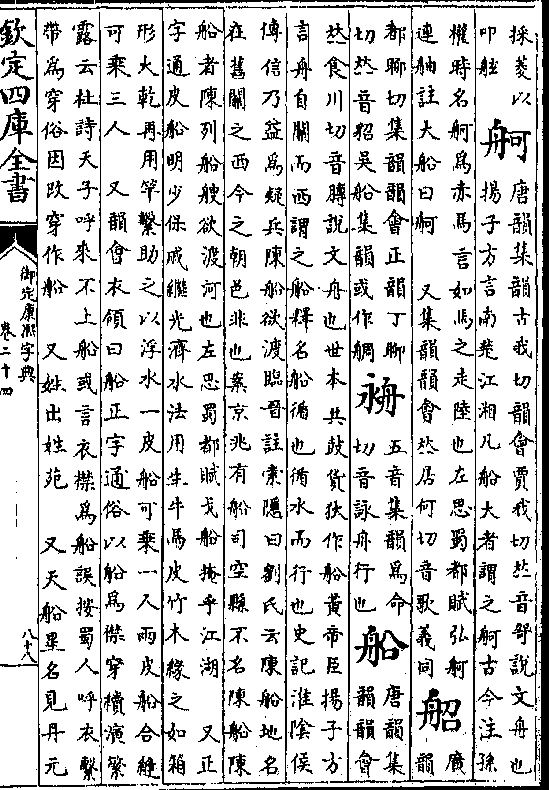 採菱以
叩舷
舸
唐韻集韻古我切韻會賈我切𠀤音哿說文舟也
揚子方言南楚江湘凡船大者謂之舸古今注孫
權時名舸為赤馬言如馬之走陸也左思蜀都賦弘舸
連舳註大船曰舸 又集韻韻會𠀤居何切音歌義同
廣
韻
都聊切集韻韻會正韻丁聊
切𠀤音貂吳船集韻或作䑳
五音集韻為命
切音詠舟行也
船
唐韻集
韻韻會
𠀤食川切音膞說文舟也世本共鼓貨狄作船黃帝臣揚子方
言舟自關而西謂之船釋名船循也循水而行也史記淮陰侯
傳信乃益為疑兵陳船欲渡臨晉註索隱曰劉氏云陳船地名
在舊關之西今之朝邑非也案京兆有船司空縣不名陳船陳
船者陳列船艘欲渡河也左思蜀都賦戈船掩乎江湖 又正
字通皮船明少保戚繼光濟水法用生牛馬皮竹木緣之如箱
形火乾再用竿繫助之以浮水一皮船可乗一人兩皮船合縫
可乗三人 又韻會衣領曰船正字通俗以船為襟穿續演繁
露云杜詩天子呼來不上船或言衣襟為船誤按蜀人呼衣繫
帶為穿俗因改穿作船 又姓出姓苑 又天船星名見丹元
欽定四庫全書
御定康熙字典
卷二十四
八十八